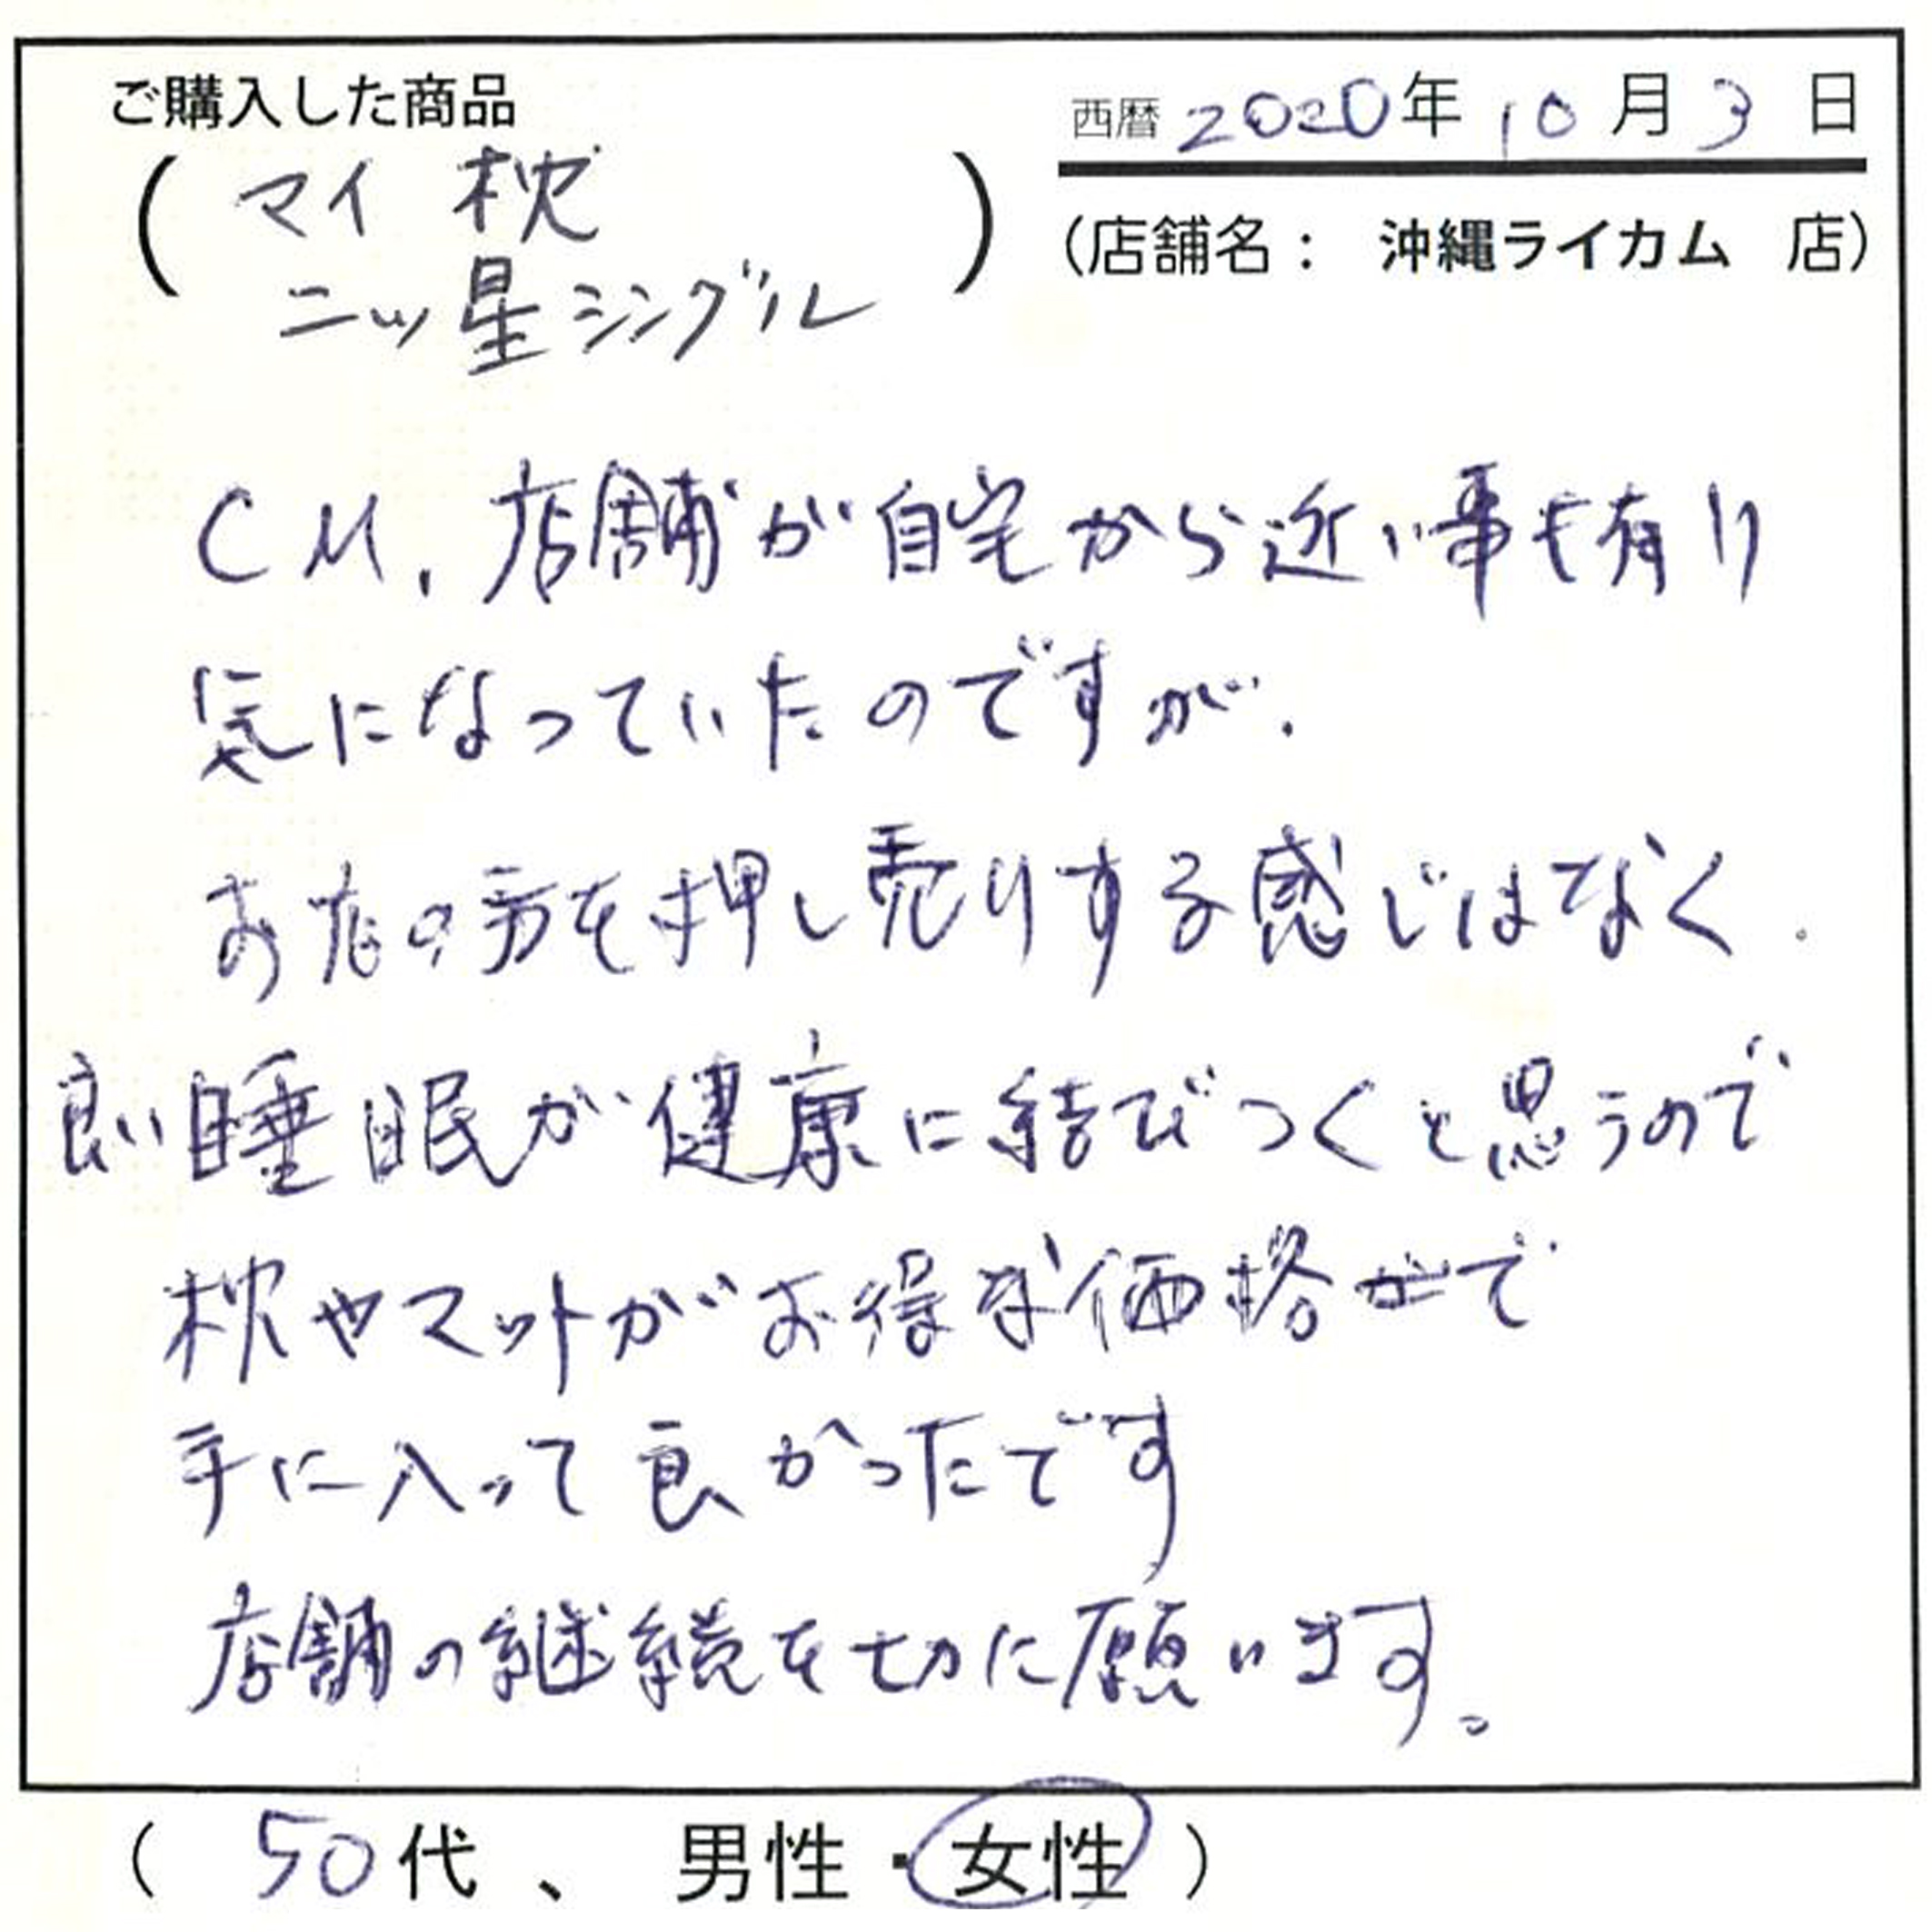 ご購入した商品
西暦 2020年 10月 3日
(マイ枕
二ッ星シングル)
(店舗名： 沖縄ライカム 店)
CM、店舗が自宅から近い事も有り
気になっていたのですが、
お店の方も押し売りする感じはなく、
良い睡眠が健康に結びつくと思うので
枕やマットがお得な価格で
手に入って良かったです
店舗の継続を切に願います。
( 50代、 男性・女性 )